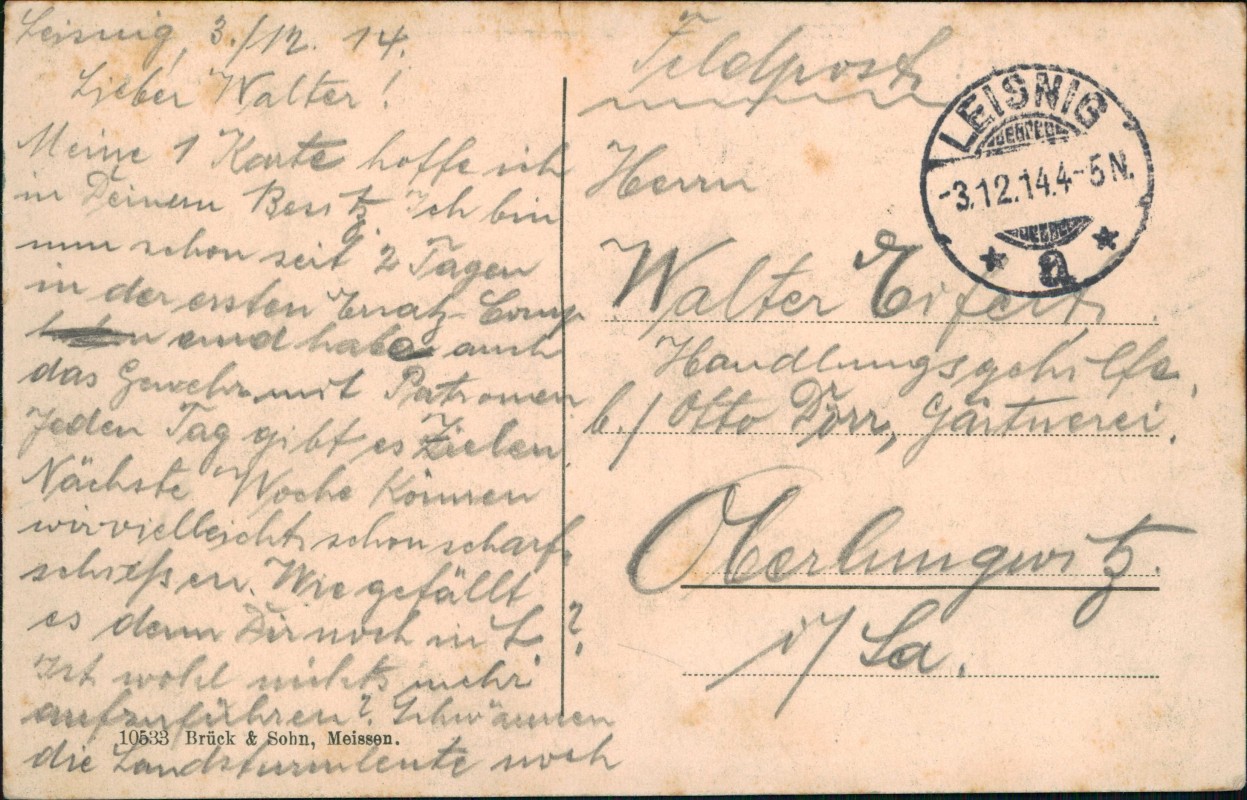 Leisnig, 3./12. 14.
Lieber Walter!
Meine 1 Karte hoffe ich
in Deinem Besitz. Ich bin
nun schon seit 2 Tagen
in der ersten Ersatz-Comp.
und habe auch
das Gewehr mit Patronen
Jeden Tag gibt es Zielen.
Nächste Woche können
wir vielleicht schon scharf
schießen. Wie gefällt
es denn Dir noch in L.?
Ist wohl nichts mehr
aufzuführen? Schwärmen
die Landsturmleute noch
10533 Brück & Sohn, Meissen.
Feldpost
LEISNIG
-3.12.14.4-5N.
a
Herrn
Walter Eifert
Handlungsgehilfe,
b./ Otto Dörr, Gärtnerei.
Oberlungwitz.
i/ Sa.